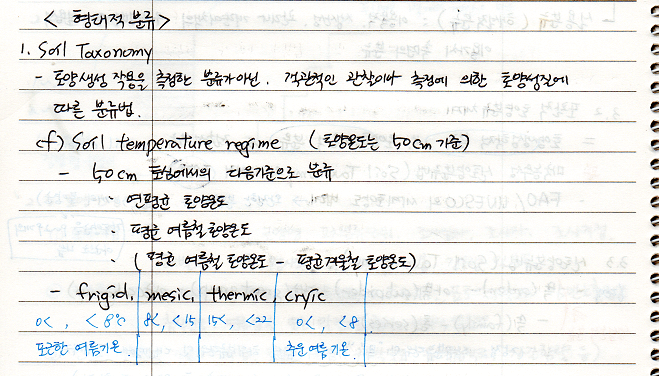 < 형태적 분류 >
1. Soil Taxonomy
- 토양생성 작용을 측정한 분류가 아닌, 객관적인 관찰이나 측정에 의한 토양성질에
따른 분류법.
cf) Soil temperature regime ( 토양온도는 50cm 기준 )
- 50cm 토심에서의 다음기준으로 분류
· 연평균 토양온도
· 평균 여름철 토양온도
· ( 평균 여름철 토양온도 - 평균겨울철 토양온도 )
- frigid, mesic, thermic, cryic
0< , <8℃ 8<, <15 15<, <22 0< , <8
포근한 여름기온 추운여름기온.